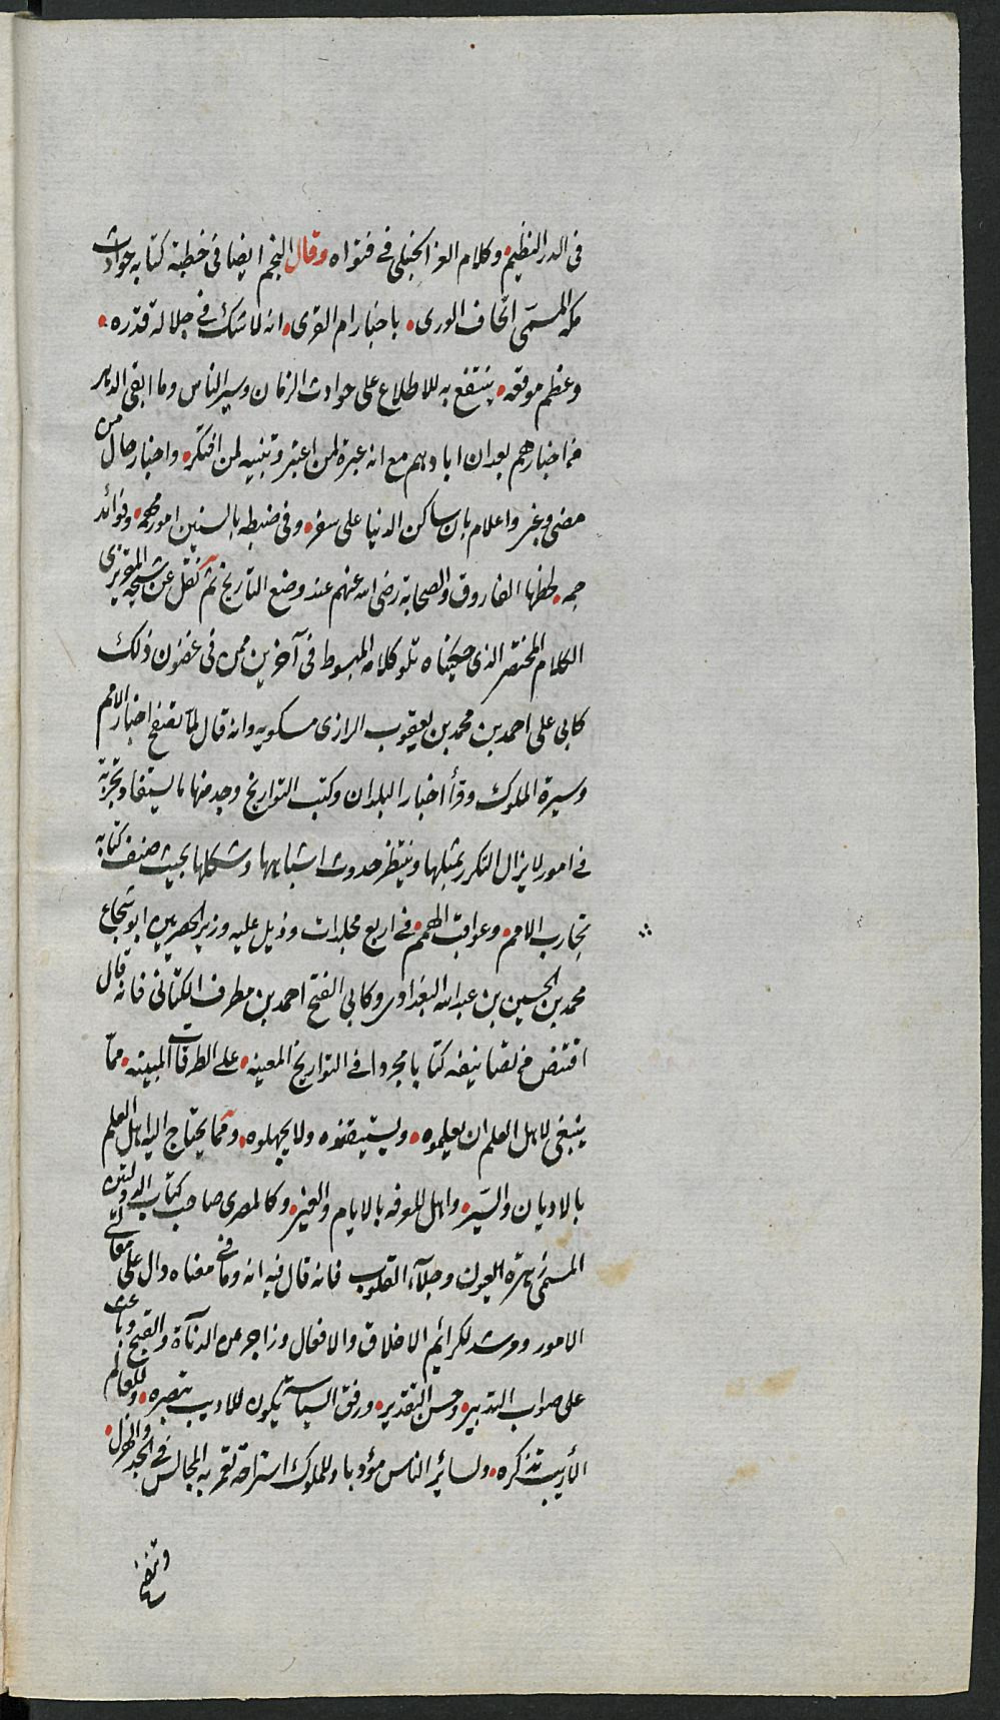 فى الدر النظيم• وكلام العز الحنبلى فى فتواه وقال النجم ايضا فى خطبة كتابه حوادث
مكة المسمّى اتحاف الورى• باخبار ام القرى• انه لا شك فى جلالة قدره•
وعظم موقعه• ينتفع به للاطلاع على حوادث الزمان وسير الناس وما ابقى الدهر
من اخبارهم بعد ان ابادهم مع انه عبرة لمن اعتبر وتنبيه لمن افتكر• واخبار حال من
مضى وغبر واعلام بان ساكن الدنيا على سفر• وفى ضبطه بالسنين امور مهمة• وفوائد
جمه• لحظها الفاروق والصحابة رضى الله عنهم عند وضع التاريخ ثم نقل عن شيخه المقريزى
الكلام المختصر الذى حكيناه تلو كلامه المبسوط فى آخرين ممن فى غضون ذلك
كابى على احمد بن محمد بن يعقوب الرازى مسكويه وانه قال لما تصفح اخبار الامم
وسيرة الملوك وقرأ اخبار البلدان وكتب التواريخ وجد منها ما يستفاد تجربة
فى امور لا يزال التكرر بمثلها وينتظر حدوث اشباهها وشكلها بحيث صنف كتابه
تجارب الامم• وعواقب الهمم• فى اربع مجلدات وذيل عليه وزير ابو شجاع
محمد بن الحسين بن عبد الله البغدادى وكابى الفتح احمد بن مطرف الكنانى فانه قال
اقتضى من تصانيفه كتابا مجردا فى التواريخ المعينه• على الطرقات المبينه• مما
ينبغى لاهل العلم ان يعلموه• ويستيقنوه ولا يجهلوه• ومما يحتاج اليه اهل العلم
بالاديان والسير• واهل المعرفه بالايام والغير• وكالمصرى صاحب كتاب الدولتين
المسمى نزهة العيون وجلاء القلوب فانه قال فيه انه وما فى معناه دال على معالى
الامور ومرشد لكرائم الاخلاق والافعال وزاجر عن الدناءة والقبح وباعث
على صواب التدبير• وحسن التقدير• ورفق السياسة يكون للاديب تبصره• وللعالم
الأريب تذكره• ولسائر الناس مؤدبا وللملوك استراحة تعمر به المجالس فى الجد والهزل•